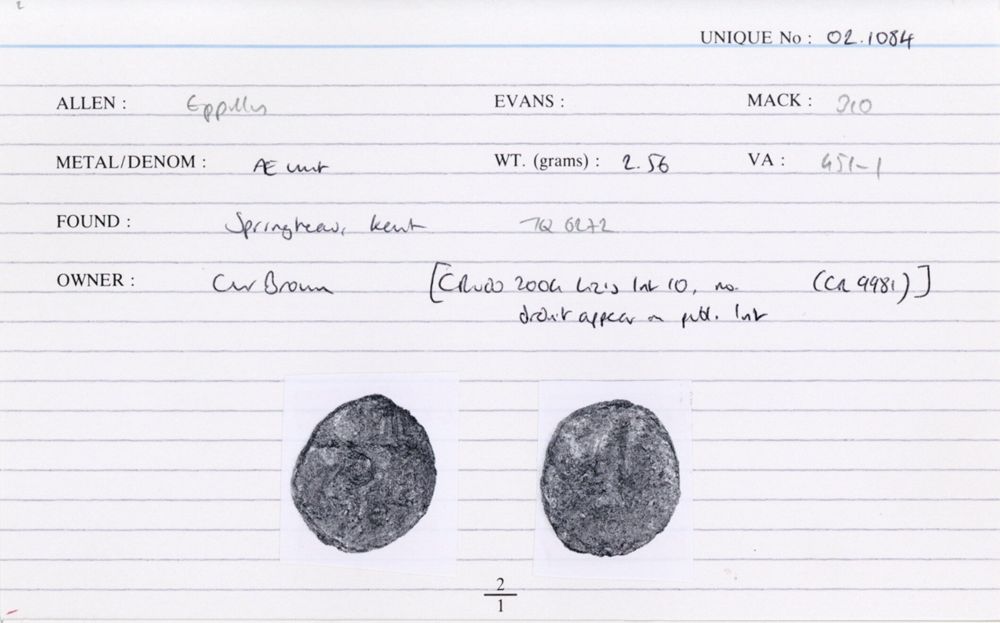 UNIQUE No : 02.1084
ALLEN : Eppillus EVANS : MACK : 310
METAL/DENOM : Æ unit WT. (grams) : 2.56 VA : 451-1
FOUND : Springhead, Kent TQ 6272
OWNER : Brown [ 2004 10, no. (CR 9981)]
appear on publ. list
2
1